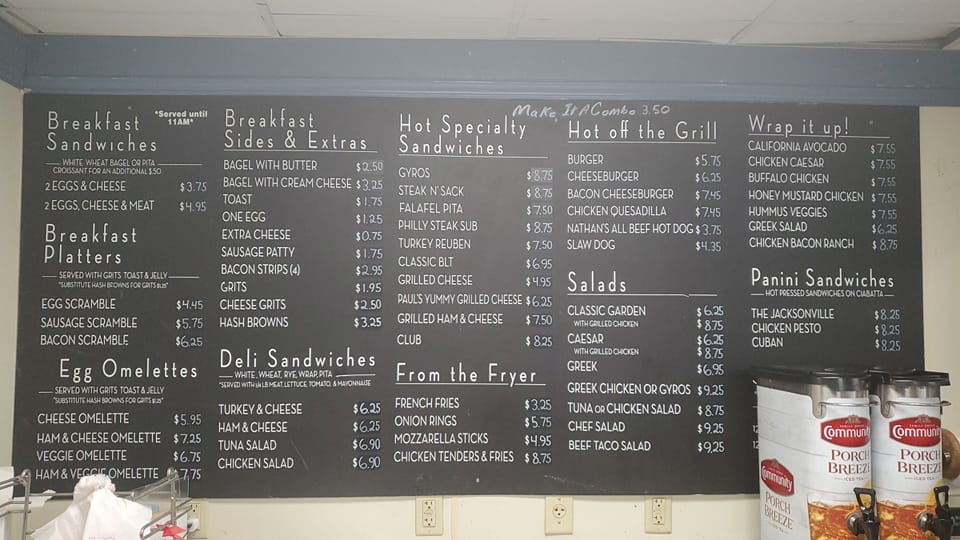 Make It A Combo 3.50
Breakfast
Sandwiches
*Served until
11AM*
WHITE WHEAT BAGEL OR PITA
CROISSANT FOR AN ADDITIONAL $.50
2 EGGS & CHEESE $3.75
2 EGGS, CHEESE & MEAT $4.95
Breakfast
Platters
SERVED WITH GRITS TOAST & JELLY
*SUBSTITUTE HASH BROWNS FOR GRITS $1.25*
EGG SCRAMBLE $4.45
SAUSAGE SCRAMBLE $5.75
BACON SCRAMBLE $6.25
Egg Omelettes
SERVED WITH GRITS TOAST & JELLY
*SUBSTITUTE HASH BROWNS FOR GRITS $1.25*
CHEESE OMELETTE $5.95
HAM & CHEESE OMELETTE $7.25
VEGGIE OMELETTE $6.75
HAM & VEGGIE OMELETTE 7.75
Breakfast
Sides & Extras
BAGEL WITH BUTTER $2.50
BAGEL WITH CREAM CHEESE $3.25
TOAST $1.75
ONE EGG $1.25
EXTRA CHEESE $0.75
SAUSAGE PATTY $1.75
BACON STRIPS (4) $2.95
GRITS $1.95
CHEESE GRITS $2.50
HASH BROWNS $3.25
Deli Sandwiches
WHITE, WHEAT, RYE, WRAP, PITA
*SERVED WITH 1/4 LB MEAT, LETTUCE, TOMATO, & MAYONNAISE
TURKEY & CHEESE $6.25
HAM & CHEESE $6.25
TUNA SALAD $6.90
CHICKEN SALAD $6.90
Hot Specialty
Sandwiches
GYROS $8.75
STEAK N' SACK $8.75
FALAFEL PITA $7.50
PHILLY STEAK SUB $8.75
TURKEY REUBEN $7.50
CLASSIC BLT $6.95
GRILLED CHEESE $4.95
PAUL'S YUMMY GRILLED CHEESE $6.25
GRILLED HAM & CHEESE $7.50
CLUB $8.25
From the Fryer
FRENCH FRIES $3.25
ONION RINGS $5.75
MOZZARELLA STICKS $4.95
CHICKEN TENDERS & FRIES $8.75
Hot off the Grill
BURGER $5.75
CHEESEBURGER $6.25
BACON CHEESEBURGER $7.45
CHICKEN QUESADILLA $7.45
NATHAN'S ALL BEEF HOT DOG $3.75
SLAW DOG $4.35
Salads
CLASSIC GARDEN $6.25
WITH GRILLED CHICKEN $8.75
CAESAR $6.25
WITH GRILLED CHICKEN $8.75
GREEK $6.95
GREEK CHICKEN OR GYROS $9.25
TUNA OR CHICKEN SALAD $8.75
CHEF SALAD $9.25
BEEF TACO SALAD $9.25
Wrap it up!
CALIFORNIA AVOCADO $7.55
CHICKEN CAESAR $7.55
BUFFALO CHICKEN $7.55
HONEY MUSTARD CHICKEN $7.55
HUMMUS VEGGIES $7.55
GREEK SALAD $6.25
CHICKEN BACON RANCH $8.75
Panini Sandwiches
HOT PRESSED SANDWICHES ON CIABATTA
THE JACKSONVILLE $8.25
CHICKEN PESTO $8.25
CUBAN $8.25
Community
PORCH
BREEZE
ICED TEA
Community
PORCH
BREEZE
Community
PORCH
BREEZE
ICED TEA